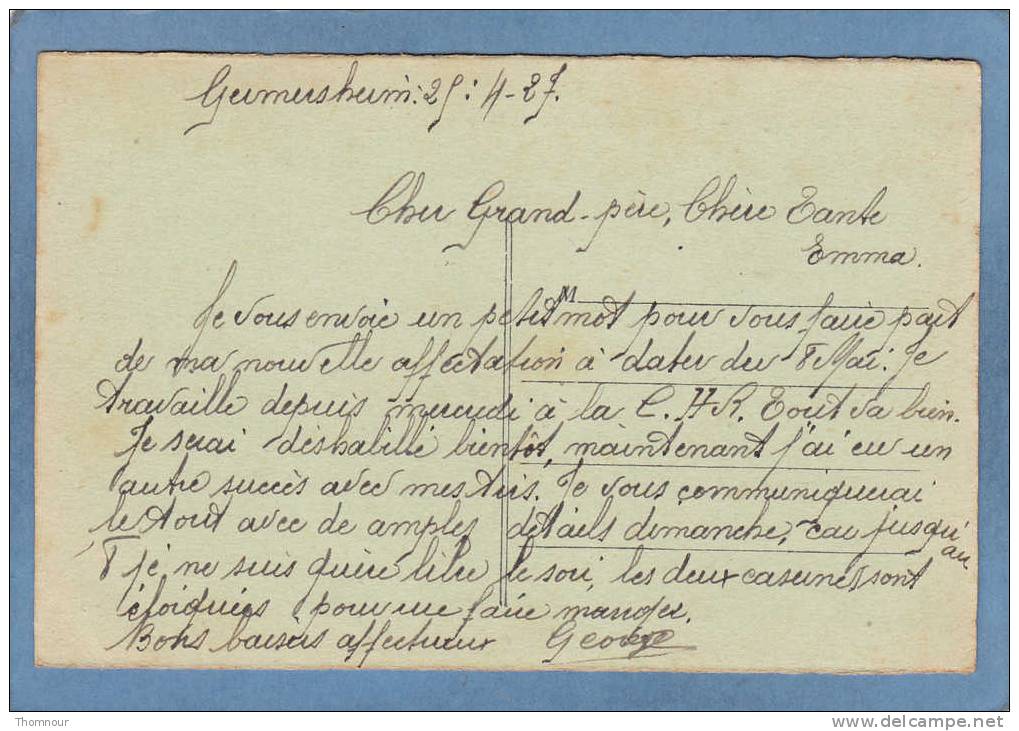 Germersheim: 25:4-27.
Cher Grand-père, Chère Tante
Emma.
M
Je vous envoie un petit mot pour vous faire part
de ma nouvelle affectation à dater du 8 Mai. Je
travaille depuis mercredi à la C. H R. Tout va bien.
Je serai déshabillé bientôt, maintenant j'ai eu un
autre succès avec mes tirs. Je vous communiquerai
le tout avec de amples détails dimanche, car jusqu'
au
8 je ne suis guère libre le soir, les deux casernes sont
éloignées pour me faire manger.
Bons baisers affectueux George
Thomnour
http://www.delcampe.net